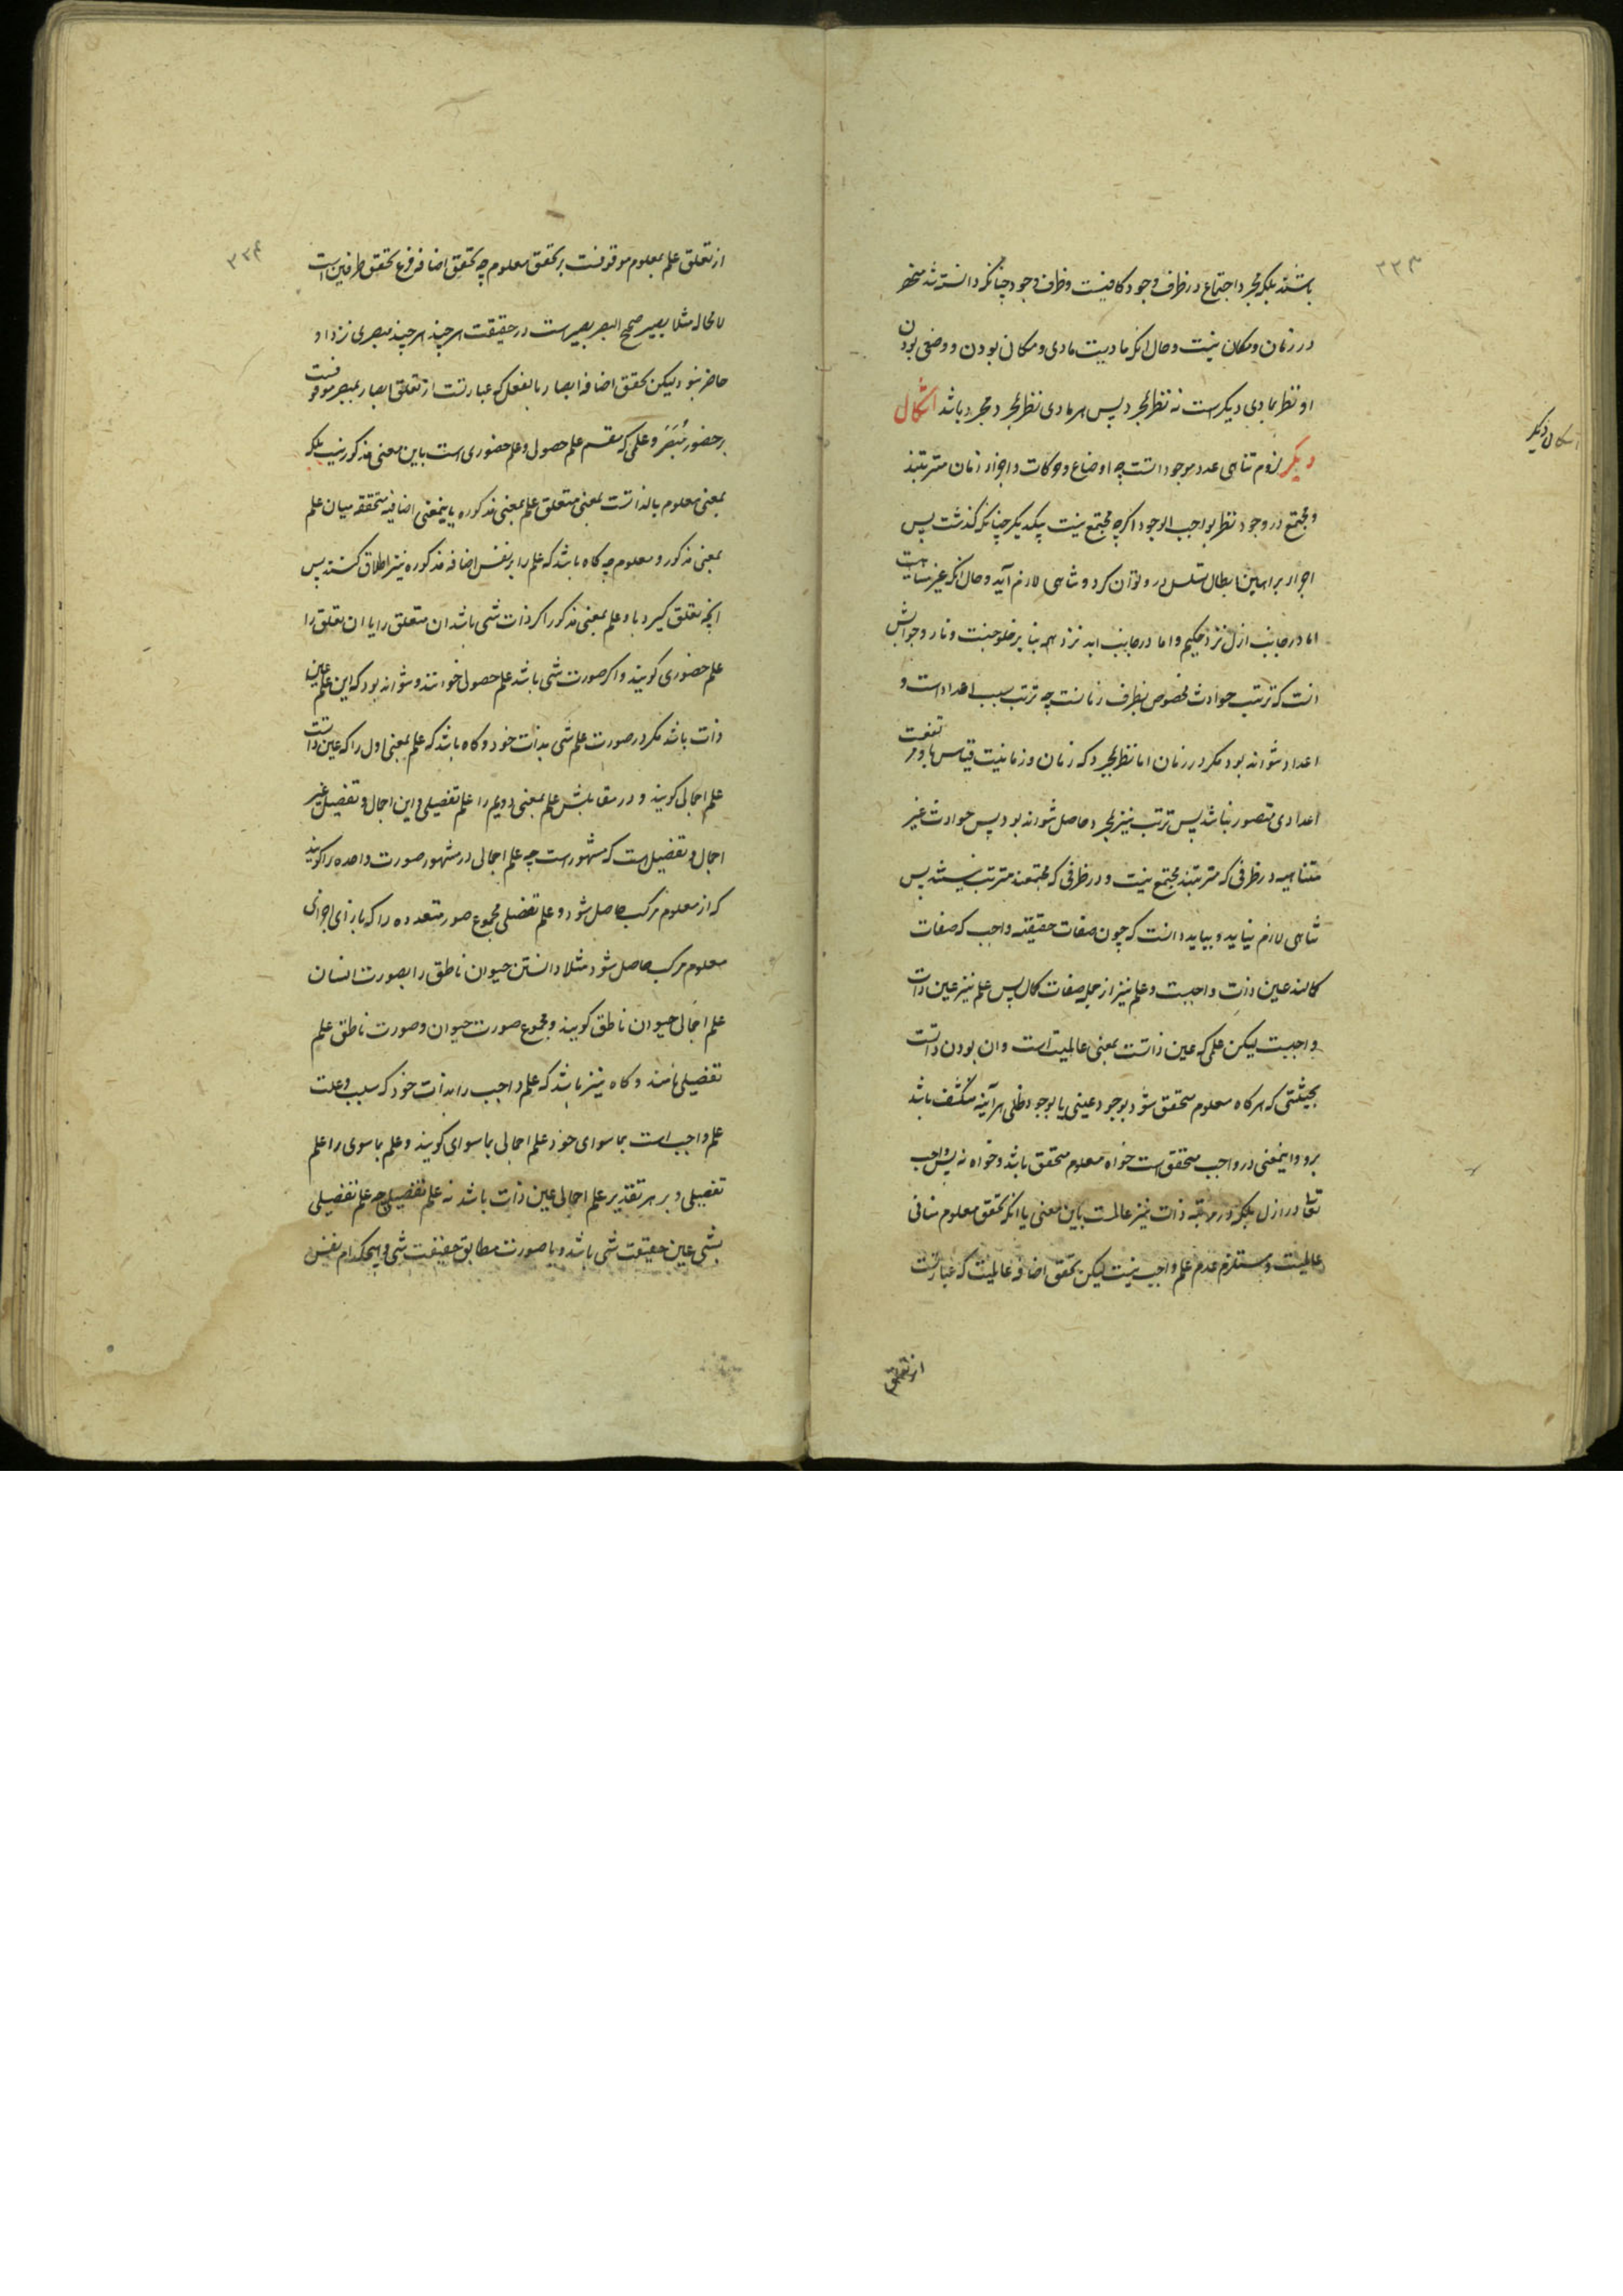 ۳۳۳
باشند بلکه مجرد اجتماع در ظرف وجود کافیست و ظرف وجود چنانکه دانسته شد منحصر
در زمان و مکان نیست و حال انکه مادیت مادی و مکان بودن و وضعی بودن
او نظر بمادی دیگر است نه نظر بمجرد پس هر مادی نظر بمجرد مجرد باشد اشکال
اشکال دیگر
دیگر لزوم تناهی عدد موجودانست چه اوضاع و حرکات و اجزاء زمان مترتبند
و مجتمع در وجود نظر بواجب الوجود اگرچه مجتمع نیست بیکدیگر چنانکه گذشت پس
اجراء براهین ابطال تسلسل در و توان کرد و تناهی لازم آید و حال انکه غیر متناهیست
اما در جانب ازل نزد حکیم و اما در جانب ابد نزد همه بنا بر خلود جنت و نار و جوابش
انست که ترتب حوادث مخصوص بظرف زمانست چه ترتب بسبب اعداد است و
اعداد نتواند بود مگر در زمان اما نظر بمجرد که زمان و زمانیت قیاس باو مرتفعست
اعدادی متصور نباشد پس ترتب نیز بمجرد حاصل نتواند بود پس حوادث غیر
متناهیه در ظرفی که مترتبند مجتمع نیست و در ظرفی که مجتمعند مترتب نیستند پس
تناهی لازم نیاید و بباید دانست که چون صفات حقیقیه واجب که صفات
کمالند عین ذات واجبست و علم نیز از جمله صفات کمال پس علم نیز عین ذات
واجبست لیکن علمی که عین ذاتست بمعنی عالمیت است و ان بودن ذاتست
بحیثیتی که هرگاه معلوم متحقق شود بوجود عینی یا بوجود ظلی هرآینه منکشف باشد
برو و اینمعنی در واجب متحقق است خواه معلوم متحقق باشد و خواه نه پس واجب
تعالی در ازل بلکه در مرتبه ذات نیز عالمست باین معنی با انکه تحقق معلوم منافی
عالمیت و مستلزم عدم علم واجب نیست لیکن تحقق اضافه عالمیت که عبارتست
از تعلق
۳۳۴
از تعلق علم بمعلوم موقوفست بر تحقق معلوم چه تحقق اضافه فرع تحقق طرفین است
لا محاله مثلا بصیر صحیح البصر بصیر است در حقیقت هر چند هر چند مبصری نزد او
حاضر نبود لیکن تحقق اضافه ابصار بالفعل که عبارتست از تعلق ابصار بمبصر موقوفست
بر حضور مبصر و علمی که مقسم علم حصولی و علم حضوری است باین معنی مذکور نیست بلکه
بمعنی معلوم بالذاتست بمعنی متعلق علم بمعنی مذکوره یا بمعنی اضافیه متحققه میان علم
بمعنی مذکور و معلوم چه گاه باشد که علم را بر نفس اضافه مذکوره نیز اطلاق کنند پس
انچه تعلق گیرد باو علم بمعنی مذکور اگر ذات شی باشد ان متعلق را یا ان تعلق را
علم حضوری گویند و اگر صورت شی باشد علم حصولی خوانند و نتواند بود که این علم عین
ذات باشد مگر در صورت علم شی بذات خود و گاه باشد که علم بمعنی اول را که عین ذاتست
علم اجمالی گویند و در مقابلش علم بمعنی دویم را علم تفصیلی و این اجمال و تفصیل غیر
اجمال و تفصیل است که مشهور است چه علم اجمالی در مشهور صورت واحده را گویند
که از معلوم مرکب حاصل شود و علم تفصیلی مجموع صور متعدده را که بازای اجزای
معلوم مرکب حاصل شود مثلا دانستن حیوان ناطق را بصورت انسان
علم اجمالی حیوان ناطق گویند و مجموع صورت حیوان و صورت ناطق علم
تفصیلی نامند و گاه نیز باشد که علم واجب را بذات خود که سبب و علت
علم واجب است بماسوای خود علم اجمالی بماسوای گویند و علم بماسوی را علم
تفصیلی و بر هر تقدیر علم اجمالی عین ذات باشد نه علم تفصیلی چه علم تفصیلی
بشی عین حقیقت شی باشد و یا صورت مطابق حقیقت شی و هیچکدام نفس